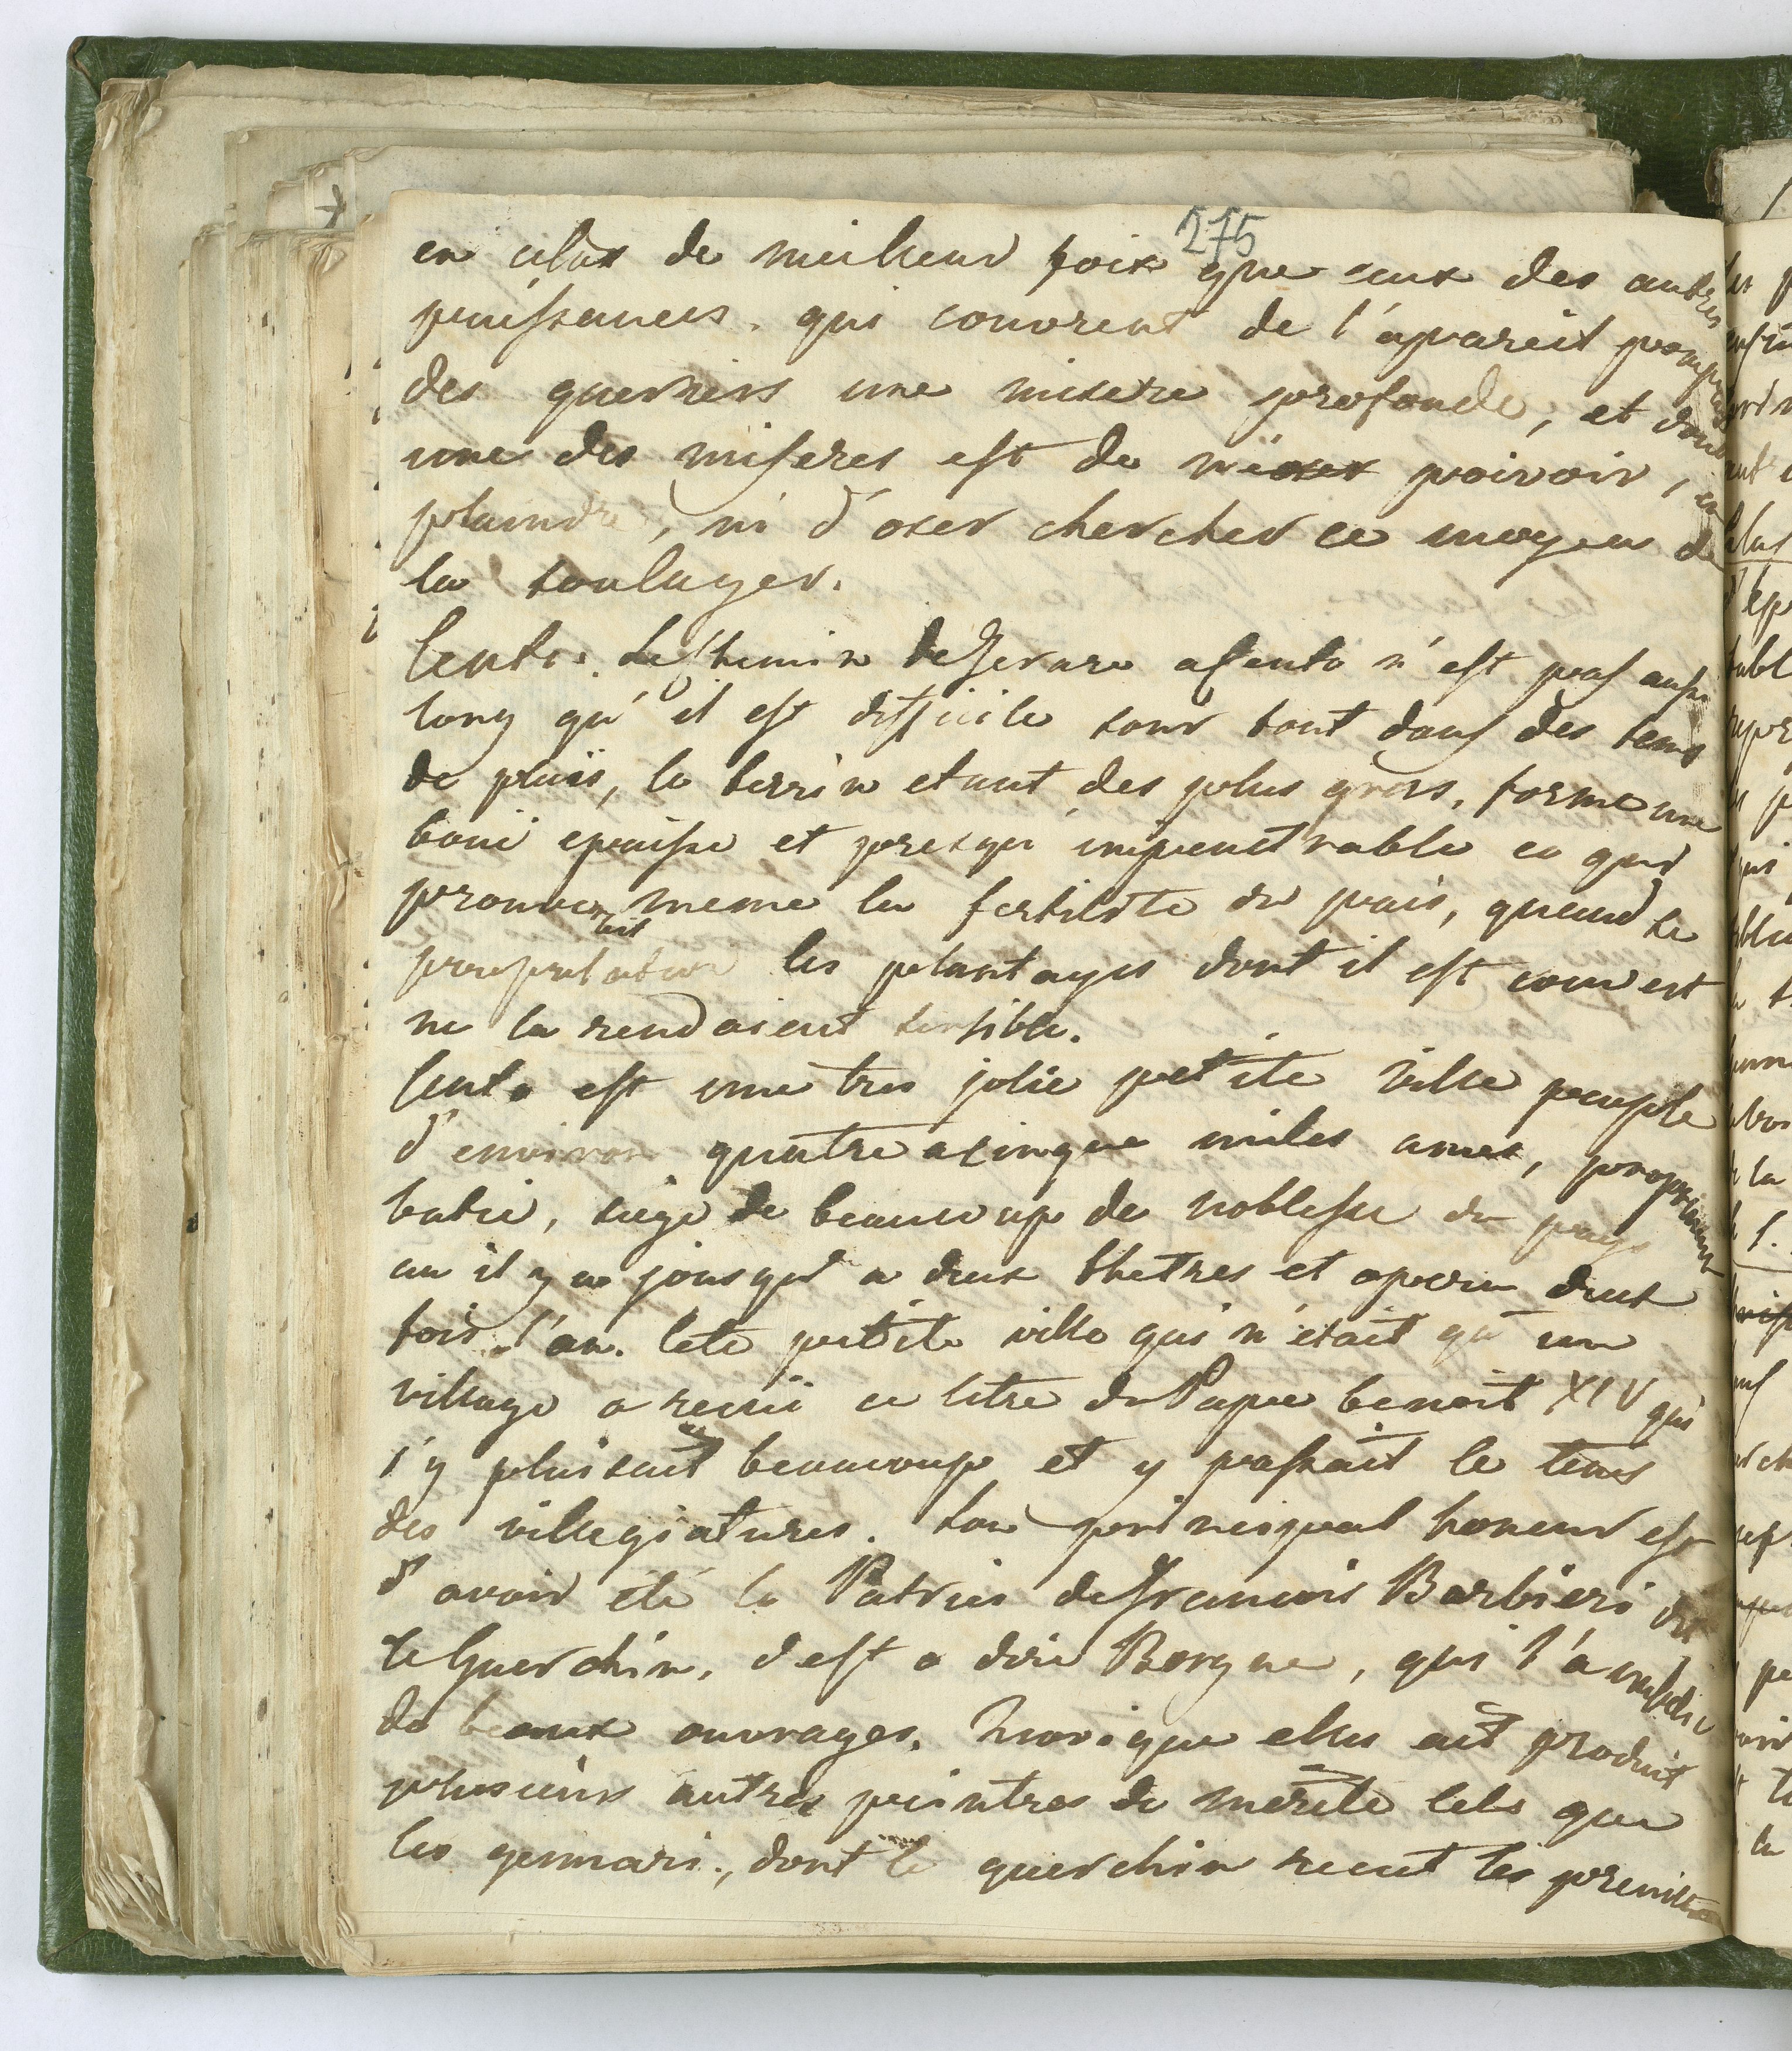 275
en celas de meilleur foix que ceux des autres
puissances. qui couvrent de l'apareil pompeux
des guerriers une misere profonde, et dont
une des miseres est de n'oser poivoir, en
plaindre, ni d'oser chercher ce moyen de
la soulager.
Cento. Le Chemin de Ferare a Cento n'est pas aussi
long qu'il est difficile sour tout dans des tems
de pluis, le terrin etant des plus gros, forme une
bouë epaisse et presqu' impenetrable ce qui
prouve meme la fertilite du païs, quand
les plantages dont il est couvert
ne la rendaient sensible.
Cento est une tres jolie petite ville peuple
d'environ quatre a cinque miles ames, proprement
batie, siege de beaucoup de noblesse du pays
au il y a jousqu' a deux thetres et opera deux
fois l'an. Cete petite ville qui n'etait qu'un
village a recuë ce titre du Pape benoit XIV qui
s'y plaisait beaucoup et y passait le tems
des villegiatures. Son principal honeur est
d'avoir été la Patrie de Francois Barbieri dit
le Guerchin, c'est a dire Borgne, qui l'a
de beaux ouvrages. elle ait produit
plusieurs autres peintres de merite tels que
les gennari., dont le guerchin recut les premiers